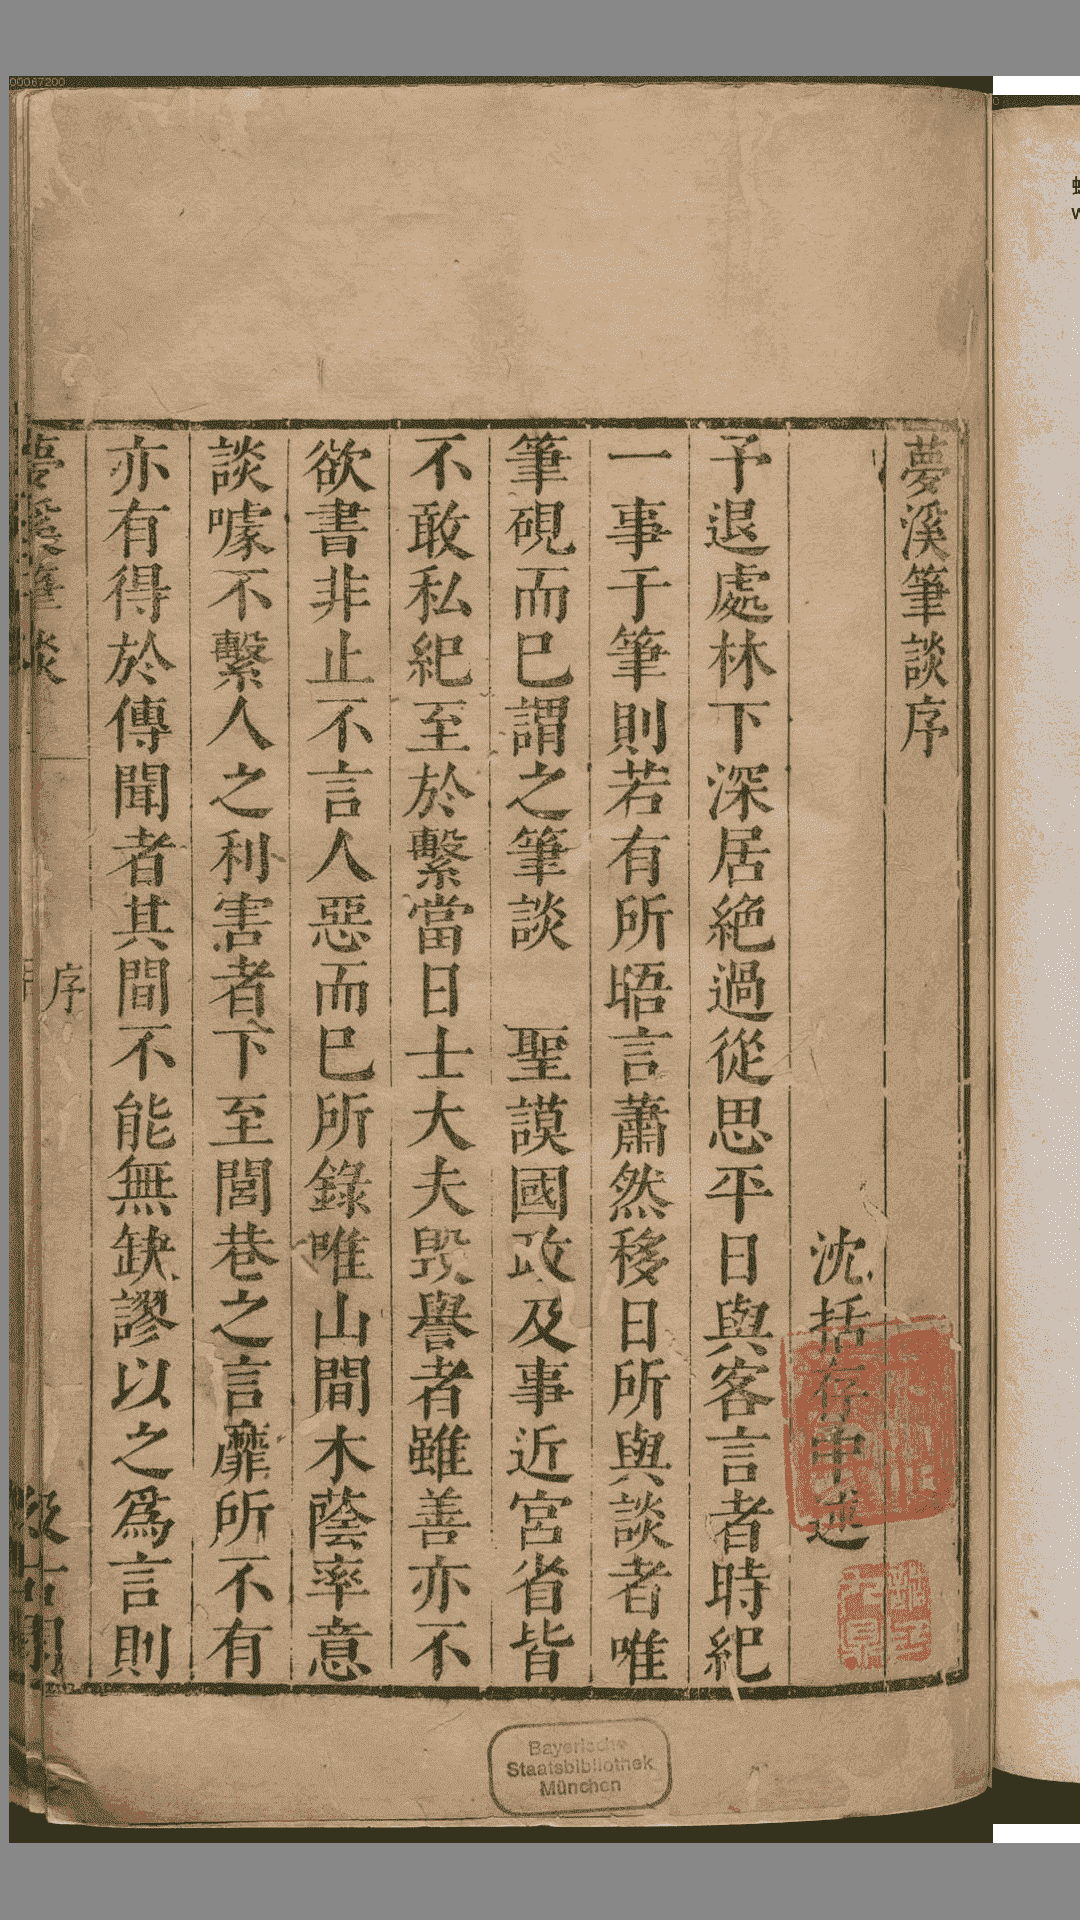 夢溪筆談序
沈括存中述
予退處林下深居絶過從思平日與客言者時紀
一事于筆則若有所晤言蕭然移日所與談者唯
筆硯而已謂之筆談　聖謨國政及事近宮省皆
不敢私紀至於繫當日士大夫毀譽者雖善亦不
欲書非止不言人惡而已所錄唯山間木蔭率意
談噱不繫人之利害者下至閭巷之言靡所不有
亦有得於傳聞者其間不能無缺謬以之爲言則
夢溪筆談
序
汲古閣
Bayerische
Staatsbibliothek
München
00067200